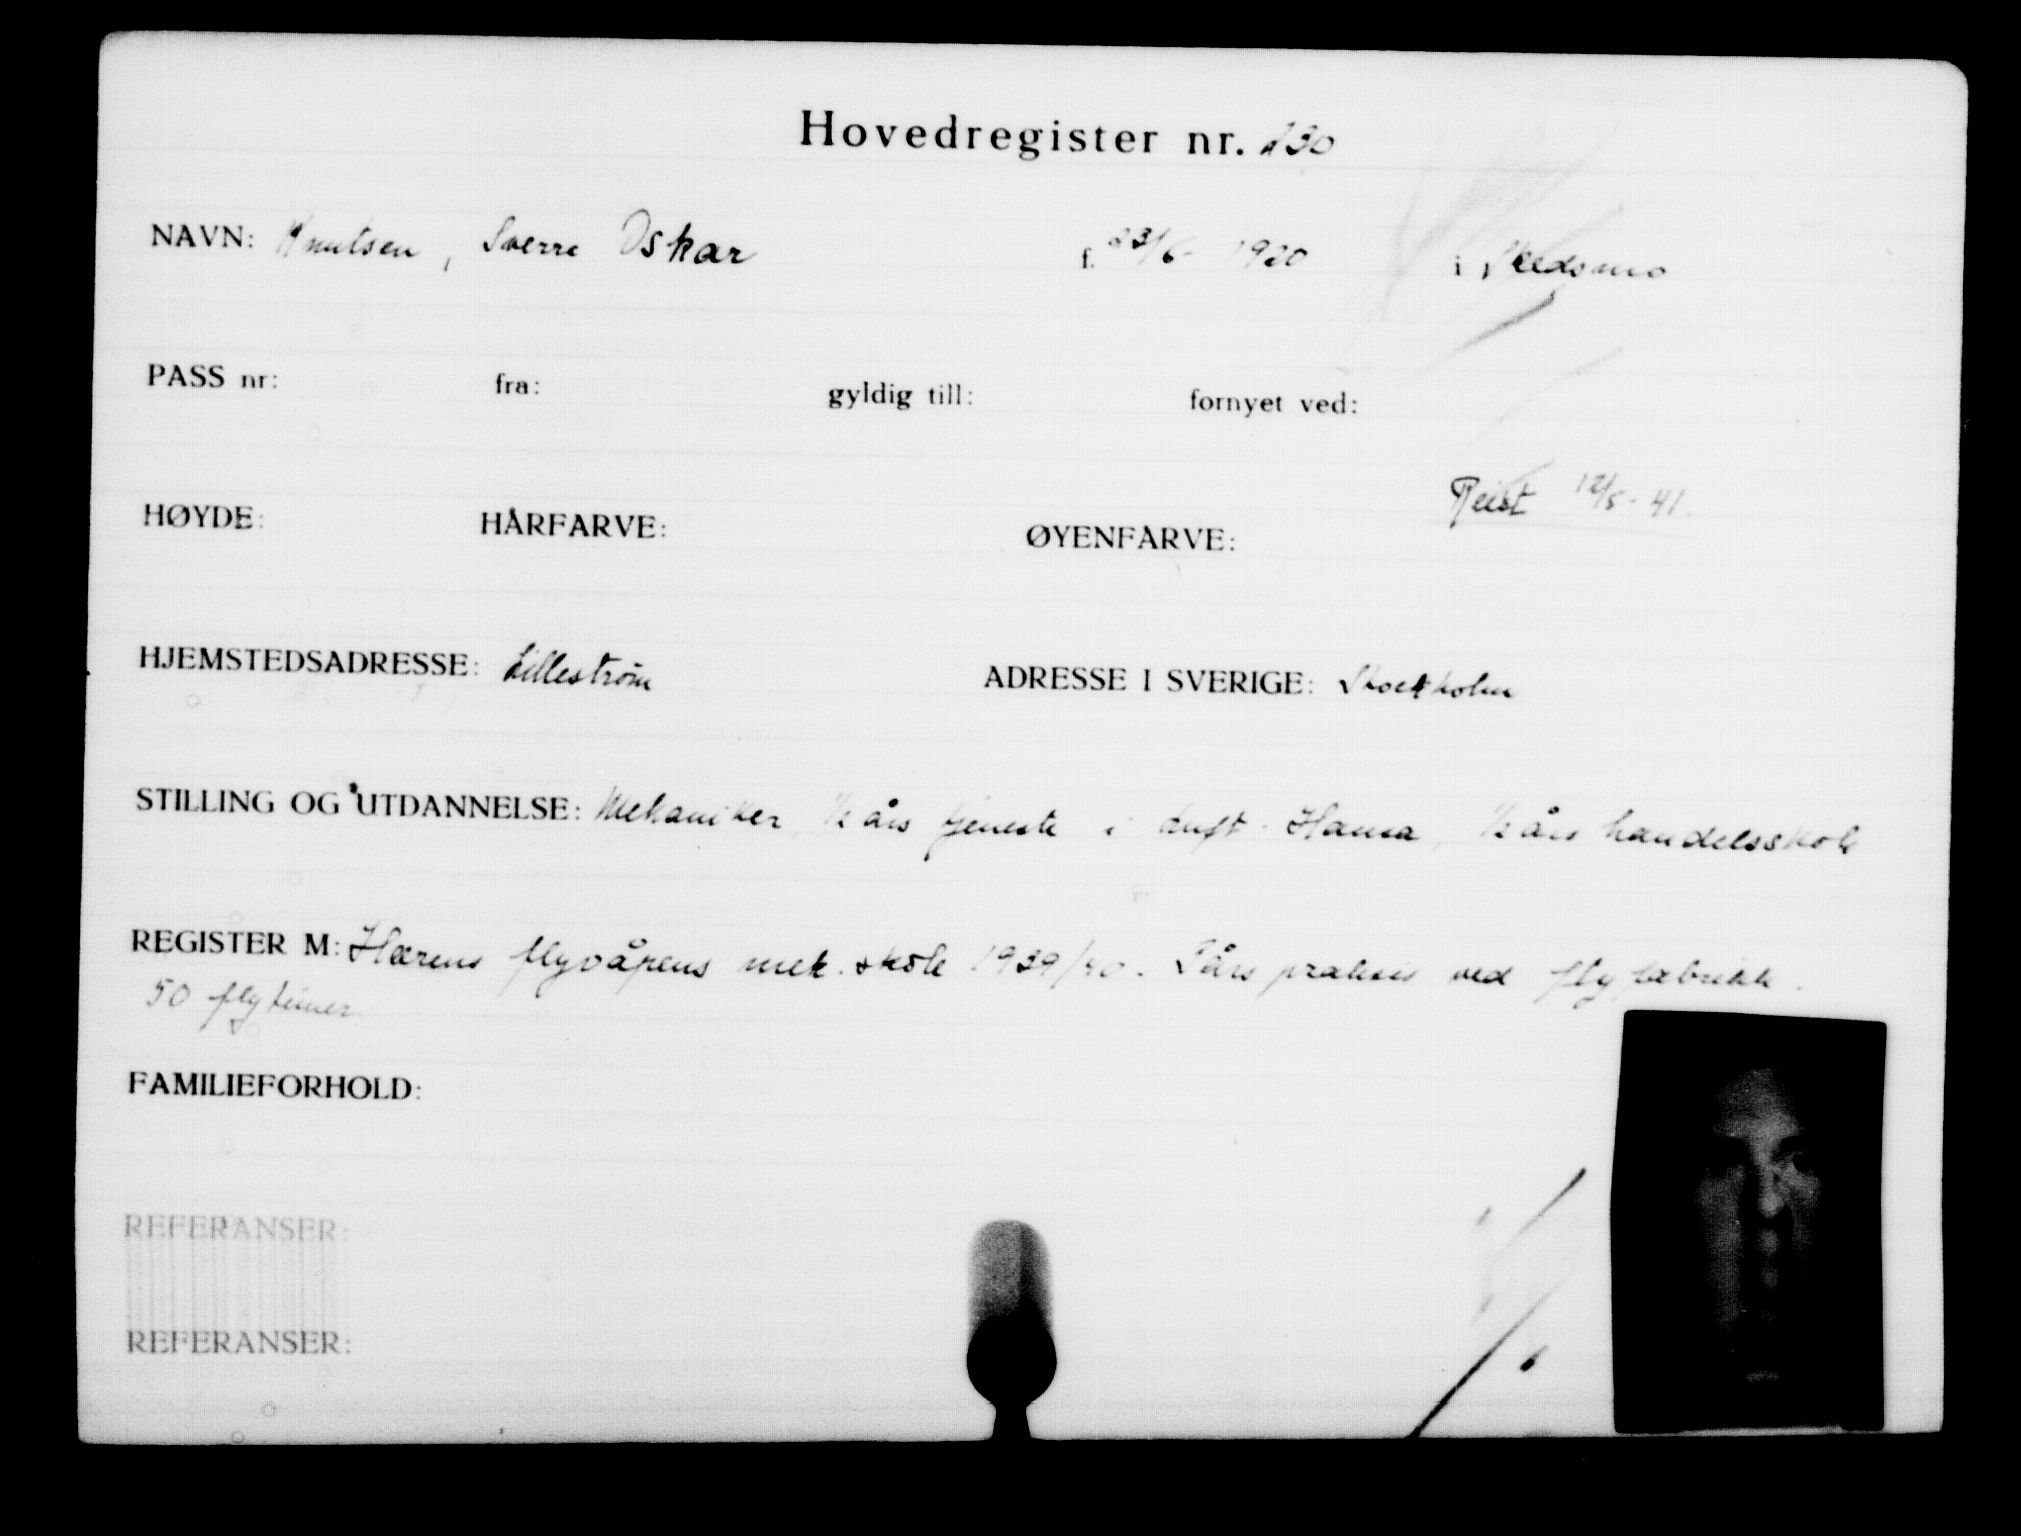 Hovedregister nr. 230
NAVN: Knutsen, Sverre Oskar f. 23/6- 1920 i Skedsmo
PASS nr: fra: gyldig till: fornyet ved:
Reist 12/5-41.
HØYDE: HÅRFARVE: ØYENFARVE:
HJEMSTEDSADRESSE: Lillestrøm ADRESSE I SVERIGE: Stockholm
STILLING OG UTDANNELSE: Mekaniker, 1/2 års tjeneste i Luft-Hansa, 1/2 års handelsskole
REGISTER M: Hærens flyvåpens mek. skole 1939/40. års praksis ved flyfabrikk.
50 flytimer
FAMILIEFORHOLD:
REFERANSER:
REFERANSER: